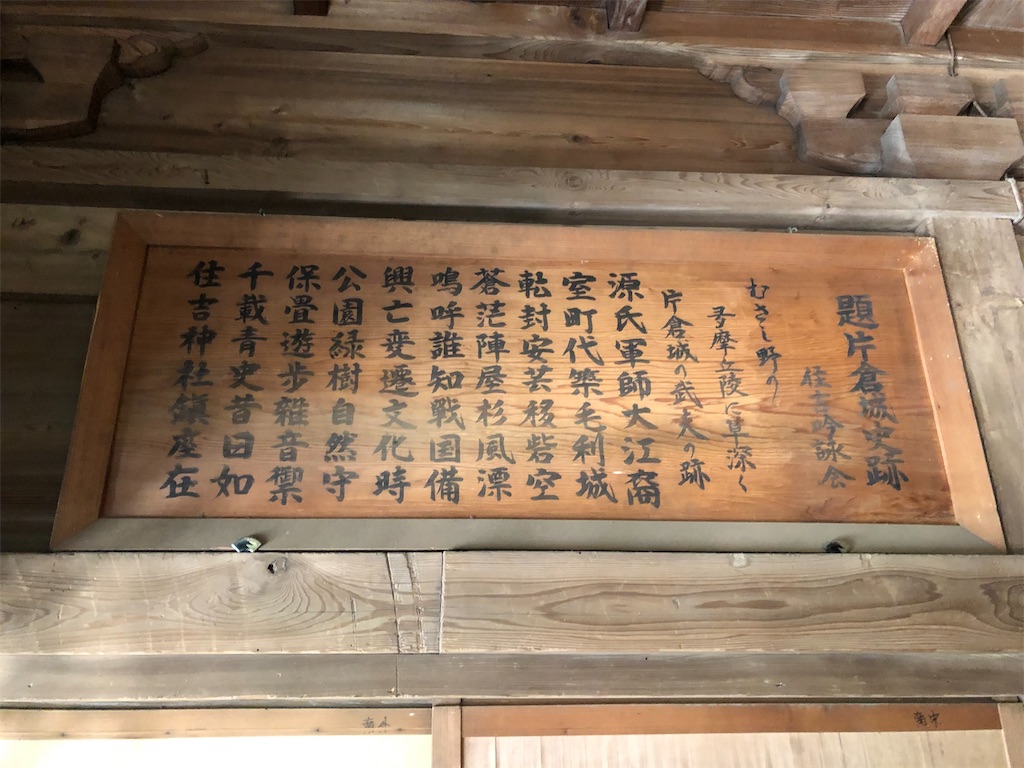 題片倉城史跡
住吉吟詠会
むさし野の
多摩丘陵に草深く
片倉城の武夫の跡
源氏軍師大江裔
室町代築毛利城
転封安芸移砦空
蒼茫陣屋杉風漂
鳴呼誰知戦国備
興亡変遷文化時
公園緑樹自然守
保畳遊歩雑音禦
千載青史昔日如
住吉神社鎮座在